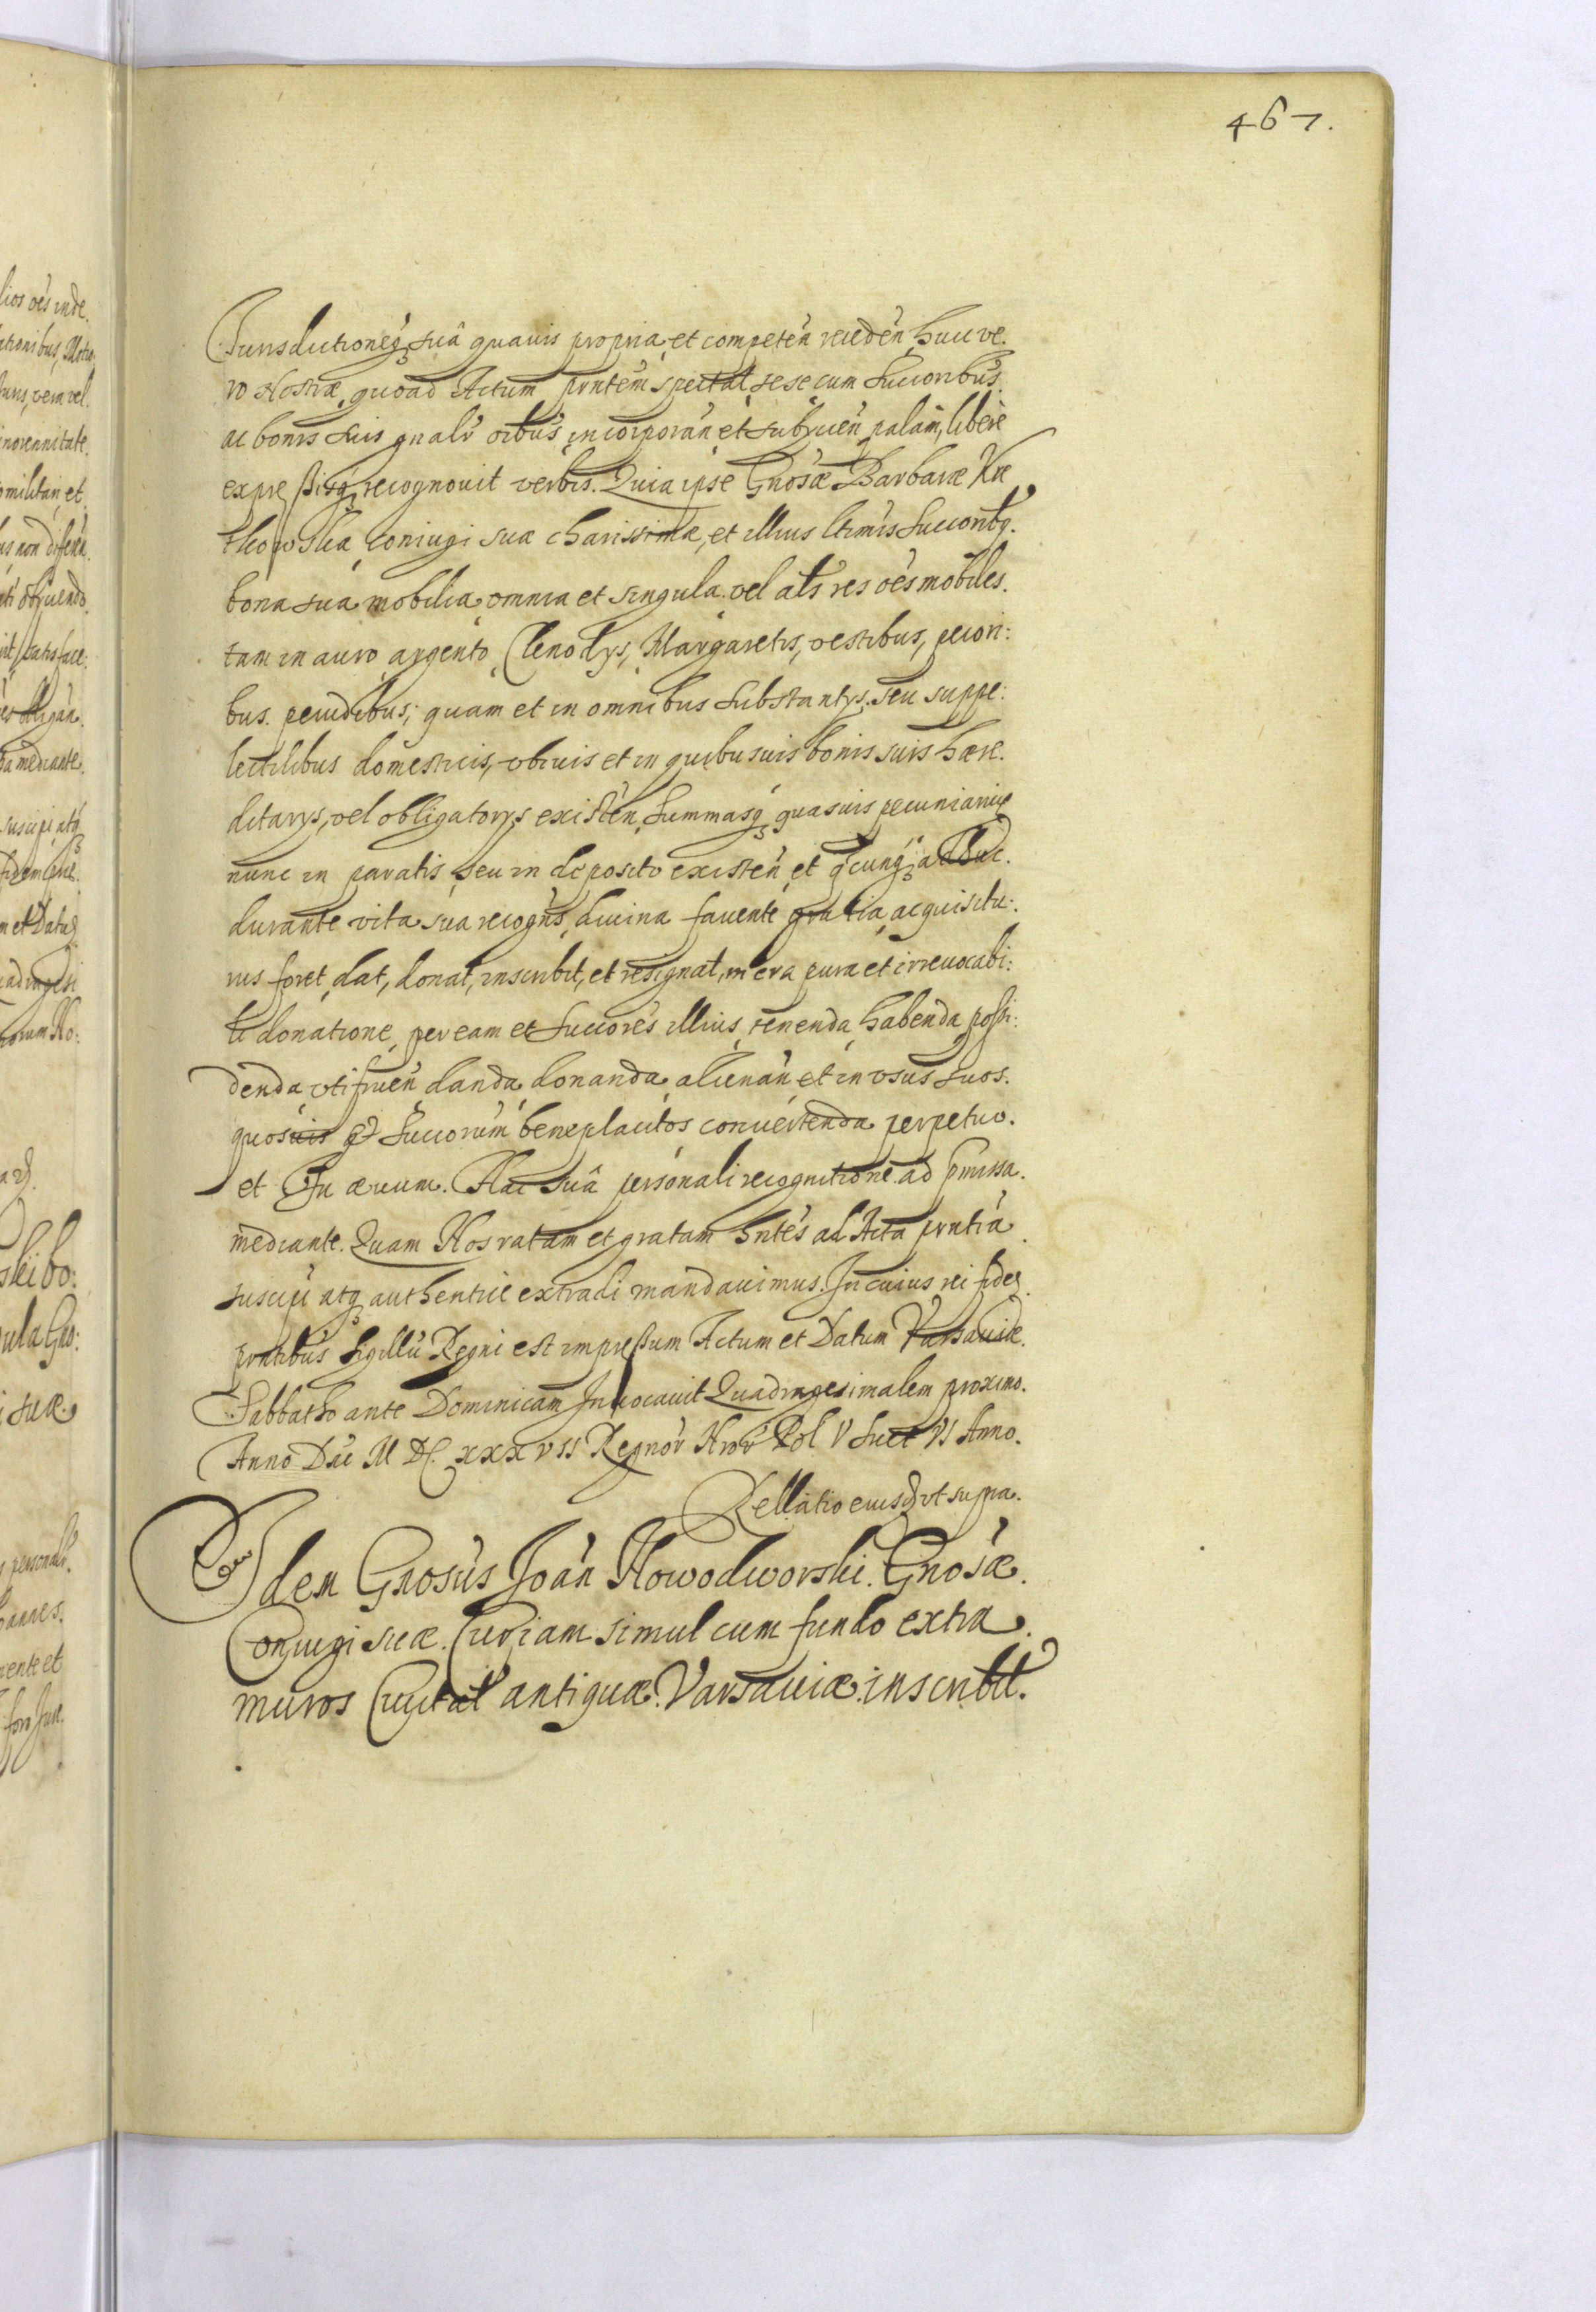 467.
Jurisdictioneq₃ suâ quauis propria et competeń recedeń huic ve.
ro Nostræ, quoad Actum pńtem spectat sese cum Succoribús
ac bonis suis gnalr oibus incorporań et subÿcień palam, libere
expressisq₃ recognouit verbis. Quia ipse Gnosæ Barbaræ
Coniugi suæ charissimæ, et illius ltimis Succoribq.
bona sua mobilia omnia et singula. vel als res oés mobiles.
tam in auro argento, Clenodÿs, Margaretis, vestibus, pecori:
bus. pecudibus; quam et in omnibus substantÿs. seu suppe:
lectilibus domesticis, vbiuis et in quibusuis bonis suis hære.
ditarÿs, vel obligatorÿs existeń, Summasq₃ quasuis pecuniarias
nunc in paratis, seu in deposito existeń et qcunq₃ adhuc.
durante vita sua recogńs, diuina fauente gratia, acquisitu:
rus foret, dat, donat, inscribit, et resignat, mera pura et irreuocabi:
li donatione, per eam et Succorés illius, tenenda, habenda, possi:
denda, vtifrueń, danda, donanda, alienań, et in vsus suos.
quosuis et Succorum beneplacitos conuertenda perpetuo.
et In æuum. Hac suâ personali recognitione ad pmissa.
mediante. Quam Nos ratam et gratam hntés ad Acta pńtia
suscipi atq₃ authentice extradi mandauimus. In cuius rei fidem
pńtibus Sigillu Regni est impressum Actum et Datum Varsauiæ.
Sabbatho ante Dominicam Inuocauit Quadragesimalem proximo.
Anno Dńi M DC. xxx vıı Regnor Nror Pol V Suet VI Anno.
Rellatio eiusd vt supra.
Idem Gnosús Joań Nowodworski. Gnosæ.
Conjugi suæ. Curiam simul cum fundo extra.
muros Ciuitat antiquæ. Varsauiæ. inscribit.